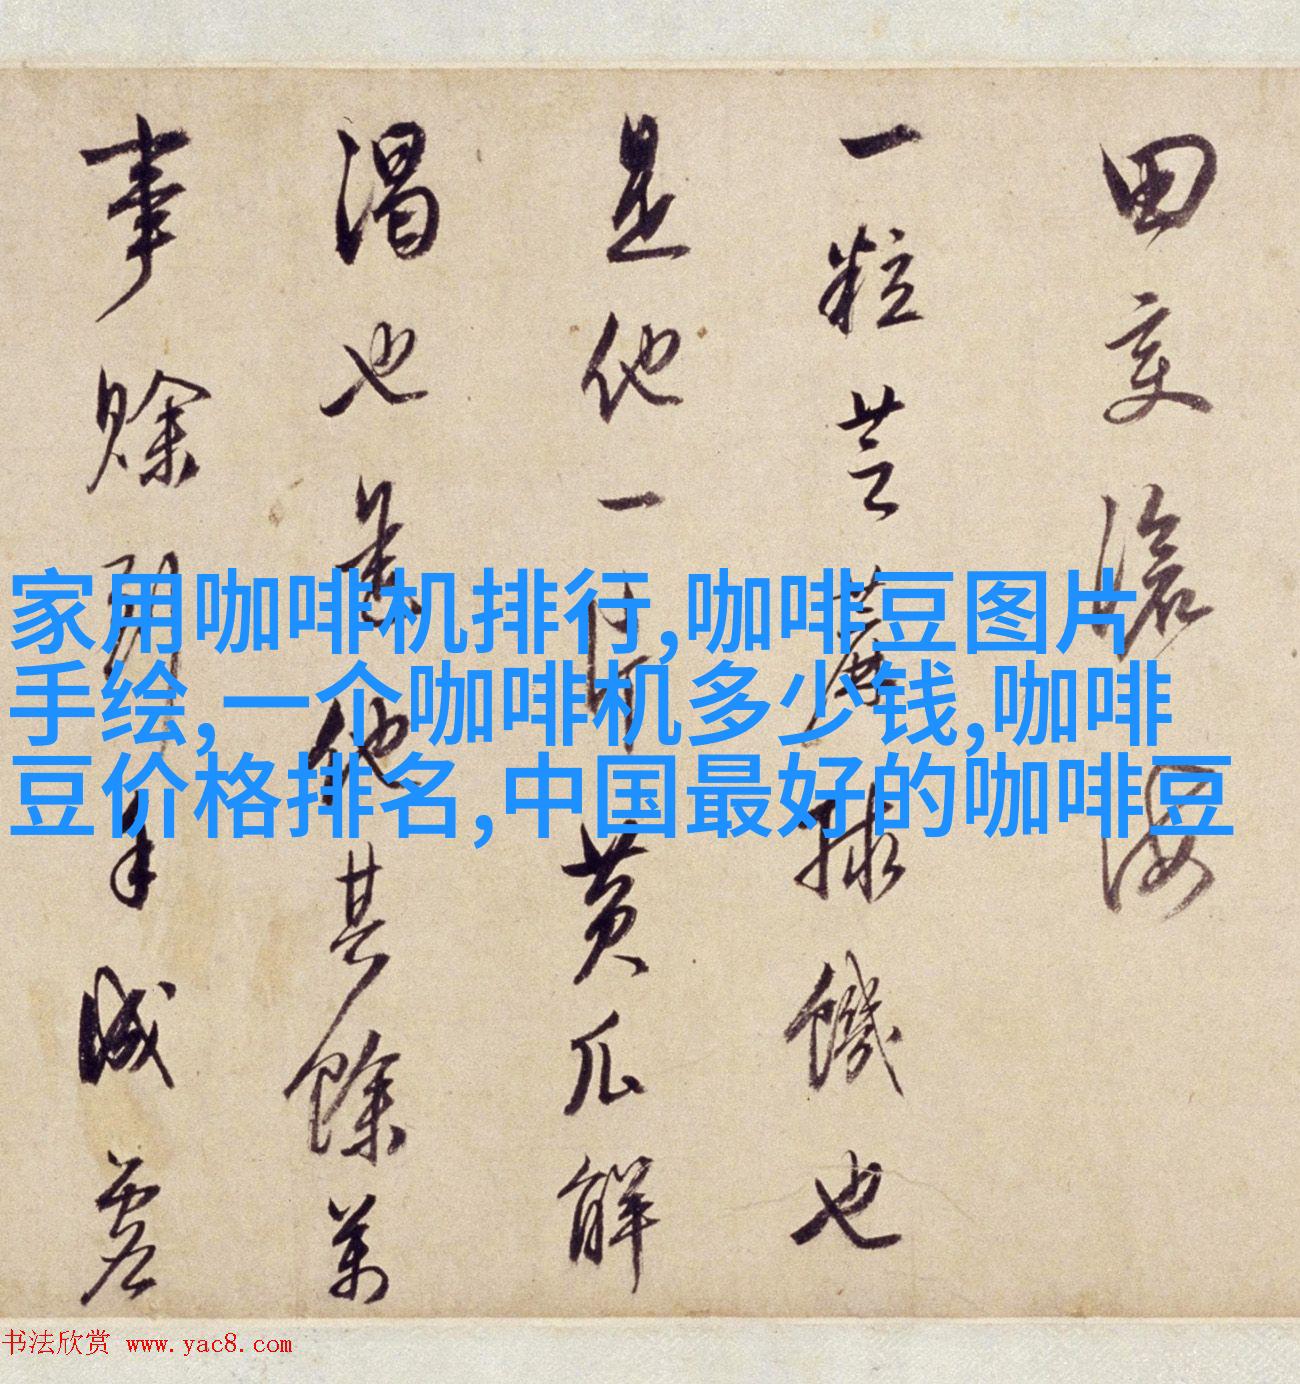 田变滄海
一粒芝蔴捄饑也
是他一黄瓜解
渴也是他其餘萬
事賒
家用咖啡机排行,咖啡豆图片
手绘,一个咖啡机多少钱,咖啡
豆价格排名,中国最好的咖啡豆
书法欣赏 www.yac8.com